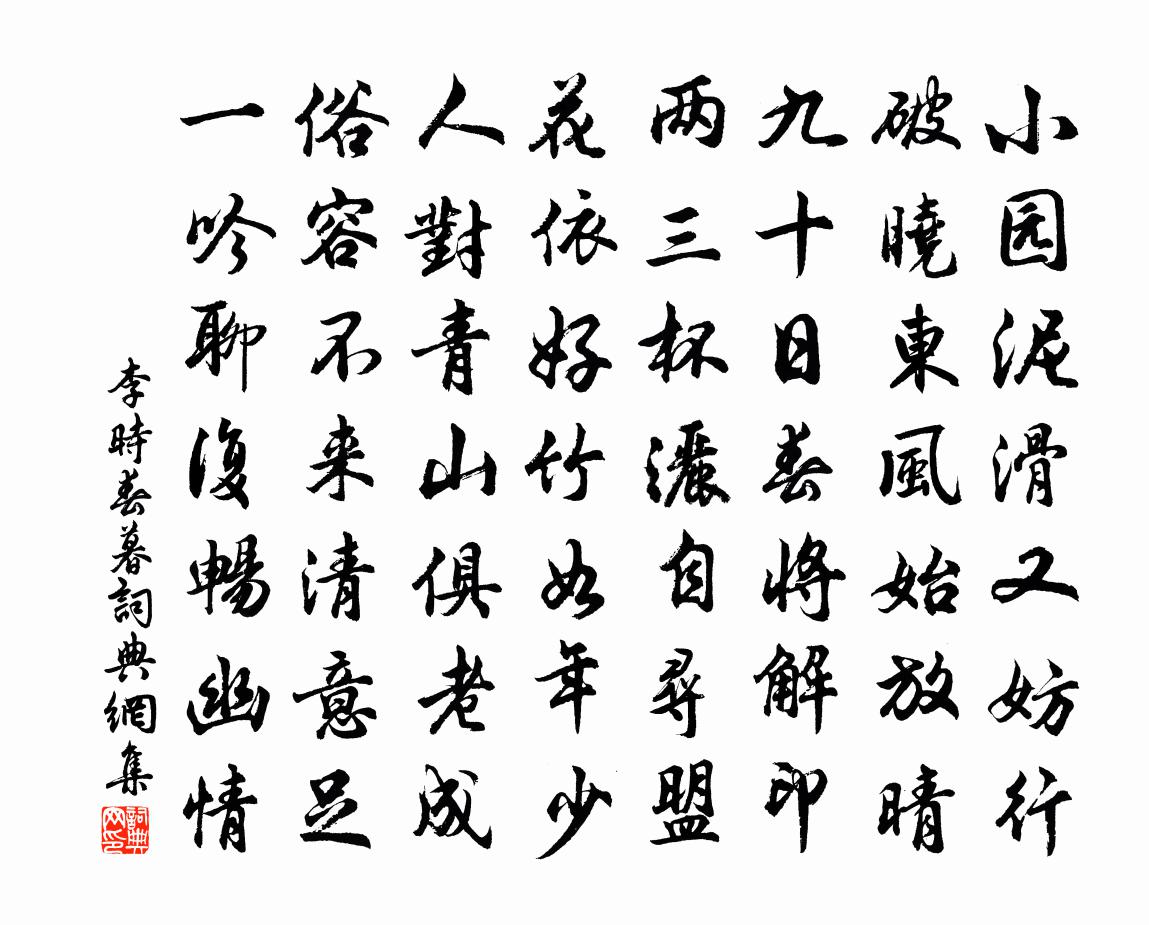 小园泥滑又妨行
破曉東風始放晴
九十日春將解印
两三杯灑自尋盟
花依好竹如年少
人對青山俱老成
俗容不来清意足
一吟聊復暢幽情
李時春暮詞典網集
詞典网印